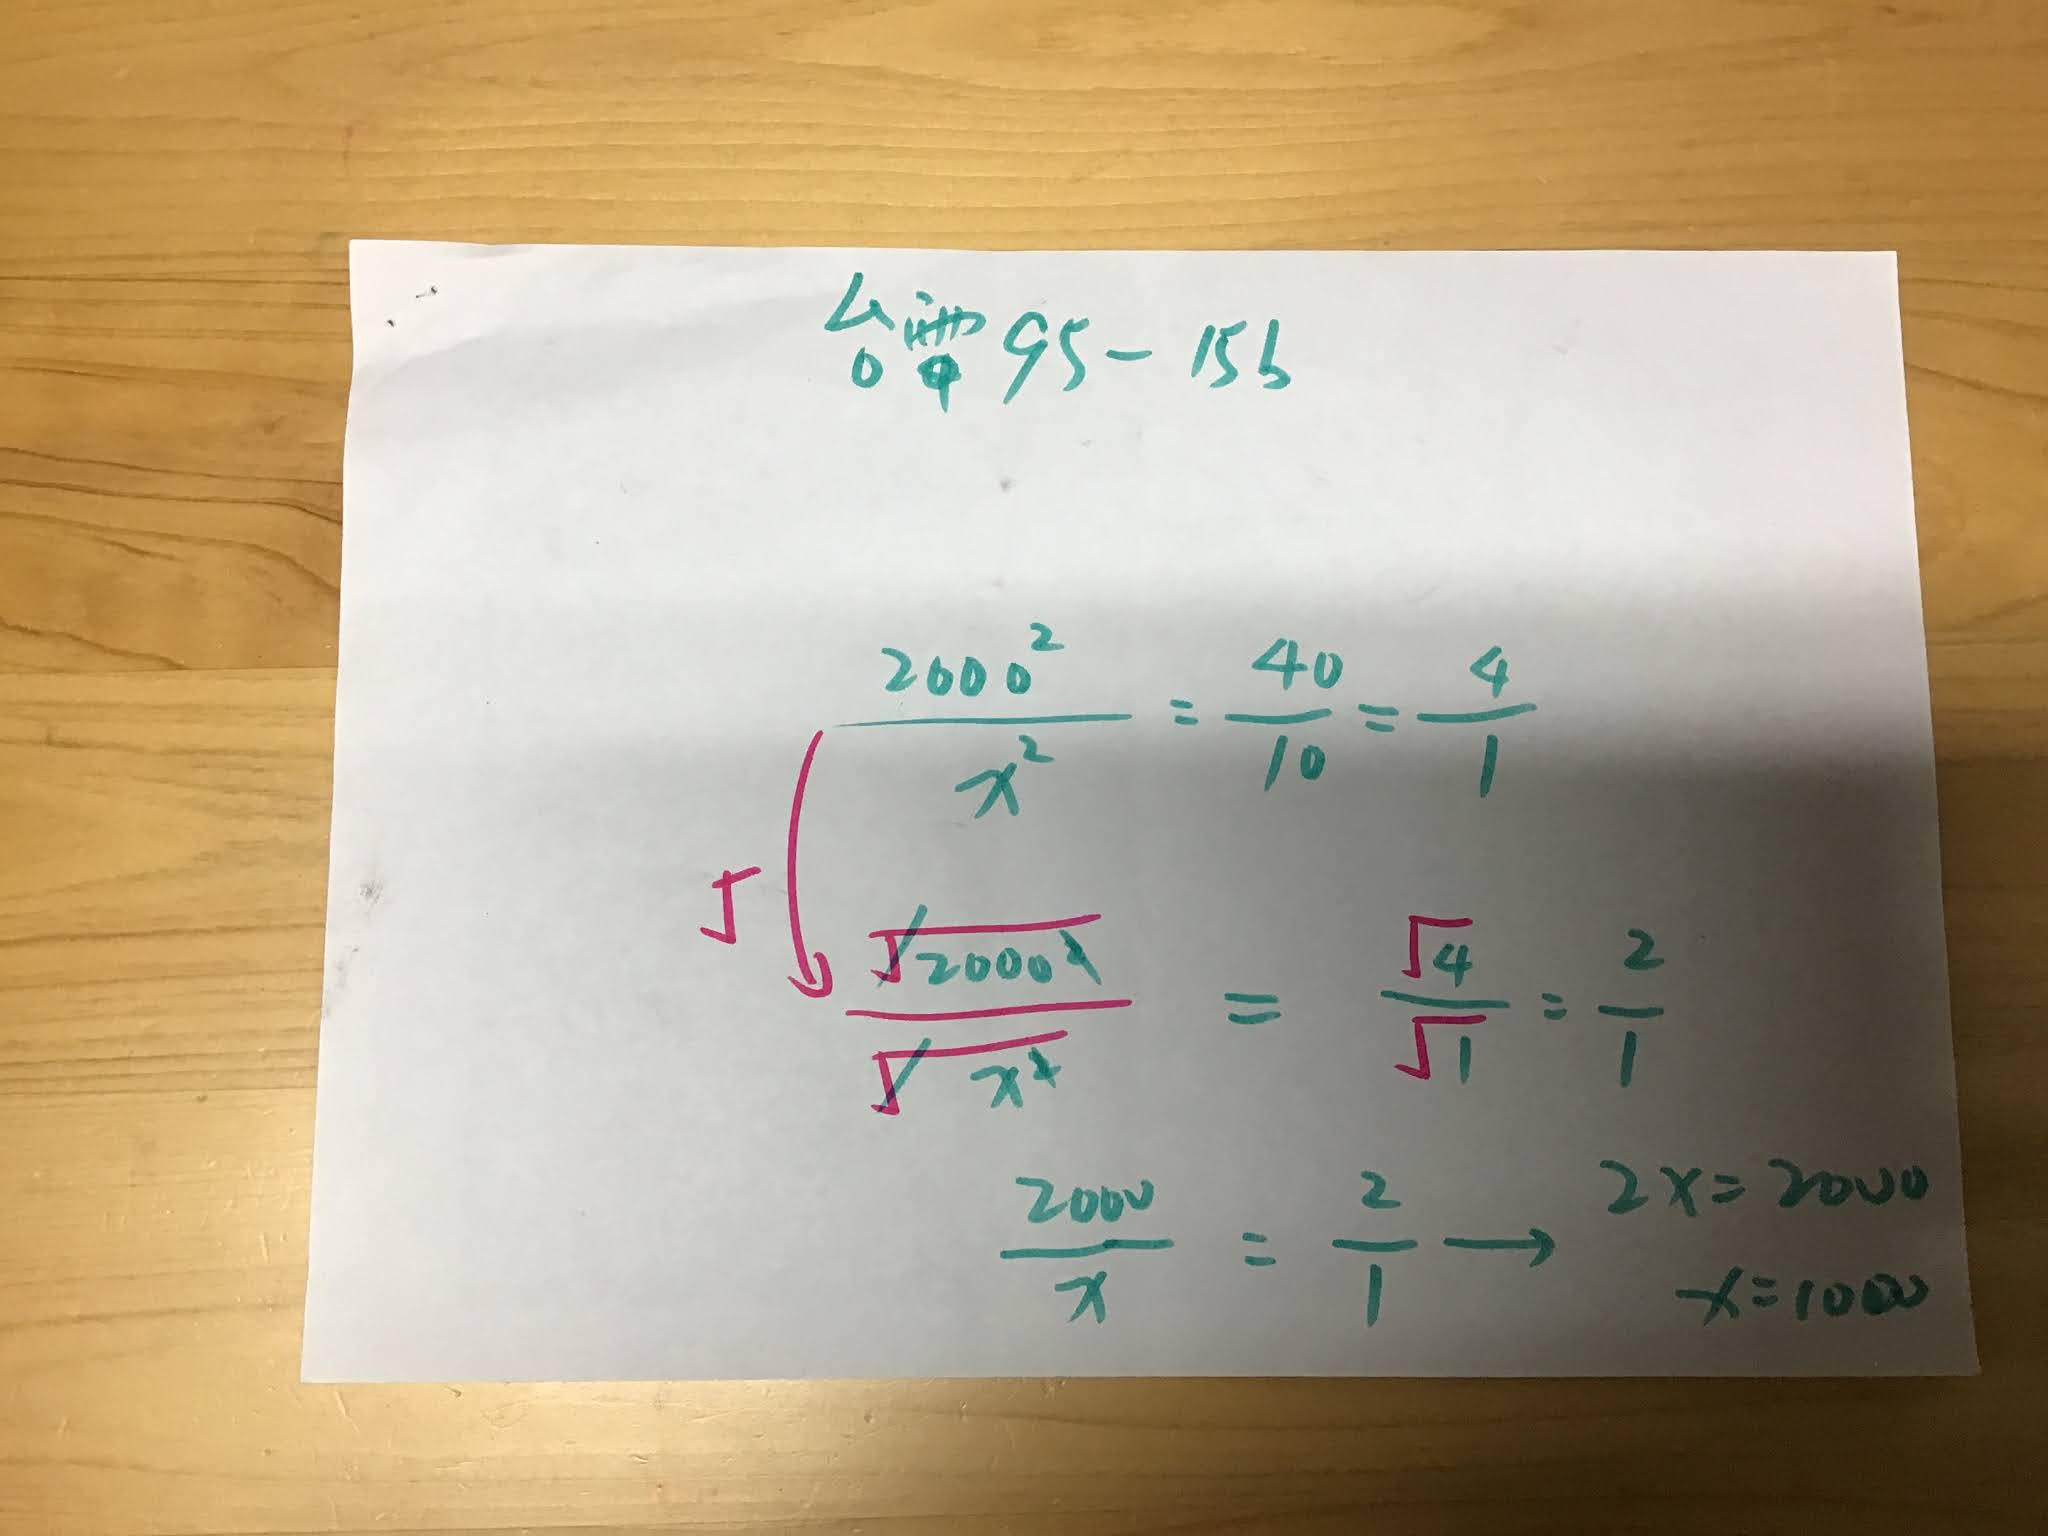 台電 95-15b
2000² / x² = 40 / 10 = 4 / 1
√
√2000² / √x² = √4 / √1 = 2 / 1
2000 / x = 2 / 1 → 2x = 2000
x = 1000